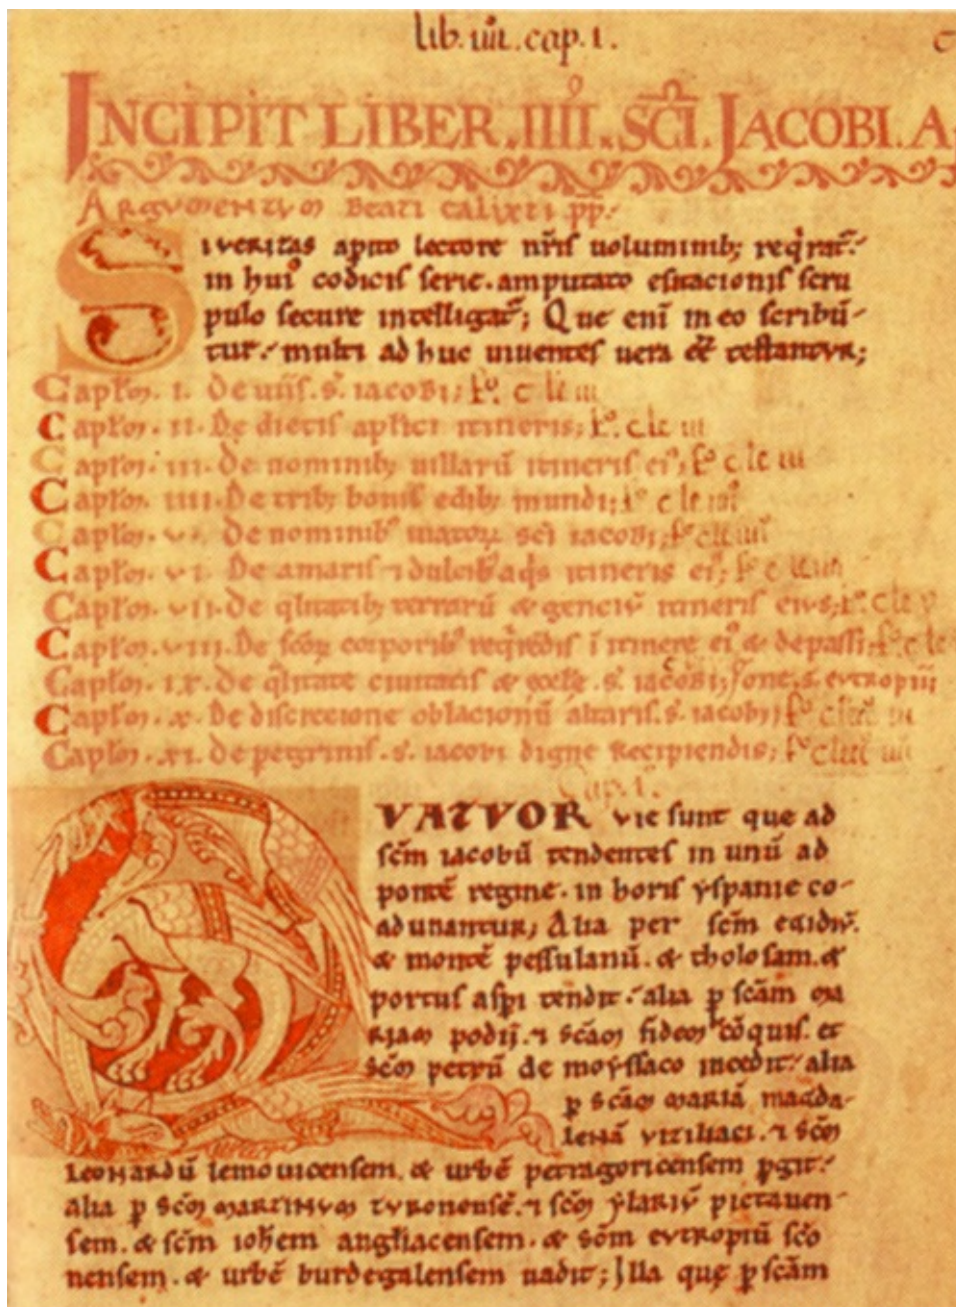 lib. iiii. cap. i.
INCIPIT LIBER. IIII. SCI. JACOBI. A
ARGUMENTUM BEATI CALIXTI pp.
SI VERITAS apito lectore nris uoluminib; reqrat.
in hui codicis serie. amputato esitacionis scru
pulo secure intelligat; Que eni in eo scribu-
tur. multi ad huc uiuentes uera ee testantur;
Captm. I. De uiis. s. iacobi; fo. c le iii
Captm. II. De dietis aptici itineris; fo. c le iii
Captm. III. De nominib; uillaru itineris ei; fo c le iii
Captm. IIII. De trib; bonis edib; mundi; fo c le
Captm. VI. De amaris ⁊ dulcib aqs itineris ei;
Captm. VII. De qlitatib; terraru & genciu itineris eius; fo. c le v
Captm. VIII. De scoꝝ corporib reqredis i itinere ei & de passi; fo. c le
Captm. IX. De qlitate ciuitatis & eccle. s. iacobi;
Captm. X. De discrecione oblacionu altaris. s. iacobi;
Captm. XI. De pegrinis. s. iacobi digne recipiendis;
Cap. i.
QVATVOR vie sunt que ad
scm iacobu tendentes in unu ad
ponte regine. in horis yspanie co-
adunantur; Alia per scm egidiu.
& monte pessulanu. & tholosam. &
portus aspi tendit. alia p scam ma
riam podii. ⁊ scam fidem coquis. et
scm petru de moyssaco incedit. alia
p scam maria magda-
lena viziliaci. ⁊ scm
leonardu lemouicensem. & urbe petragoricensem pgit.
alia p scm martinum turonense. ⁊ scm ylariu pictauen-
sem. & scm iohem angliacensem. & scm eutropiu sco
nensem. & urbe burdegalensem uadit; Illa que p scam